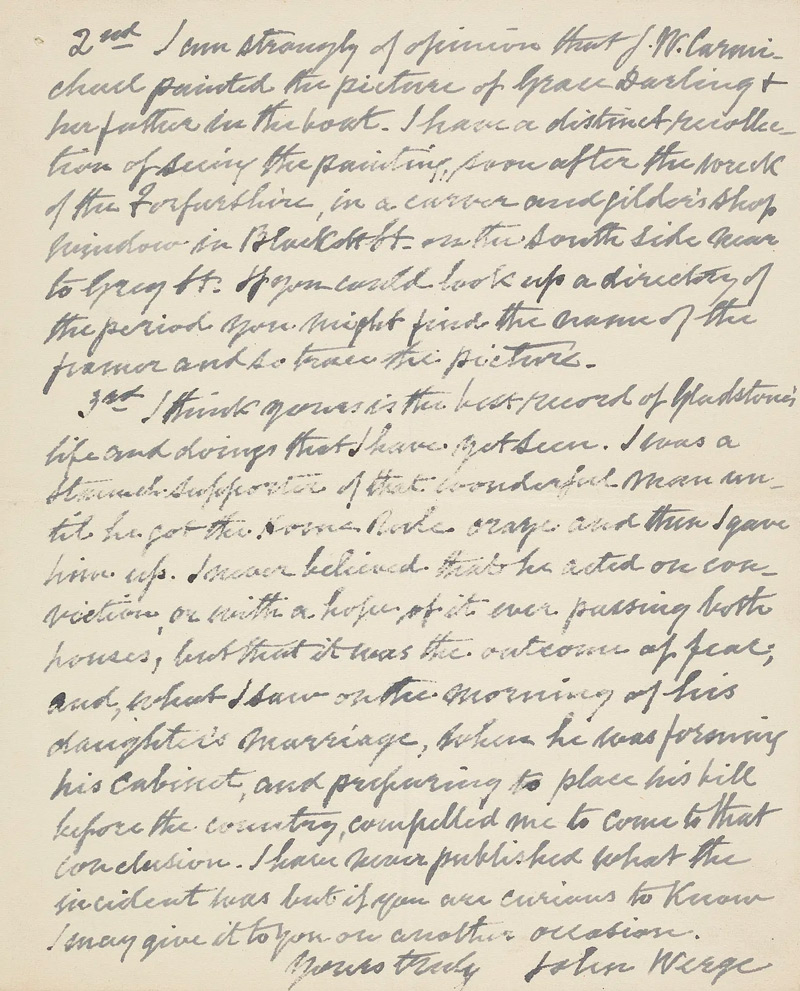 2nd I am strongly of opinion that J. W. Carmi-
chael painted the picture of Grace Darling +
her father in the boat. I have a distinct recollec-
tion of seeing the painting, soon after the wreck
of the Forfarshire, in a carver and gilder's shop
window in Blackett St. on the South side near
to Grey St. If you could look up a directory of
the period you might find the name of the
framer and so trace the picture.
3rd I think yours is the best record of Gladstone's
life and doings that I have yet seen. I was a
staunch supporter of that wonderful man un-
til he got the Home Rule craze and then I gave
him up. I never believed that he acted on con-
viction, or with a hope of it ever passing both
houses, but that it was the outcome of fear;
and, what I saw on the morning of his
daughter's marriage, when he was forming
his cabinet, and preparing to place his bill
before the country, compelled me to come to that
conclusion. I have never published what the
incident was but if you are curious to know
I may give it to you on another occasion.
Yours truly John Werge